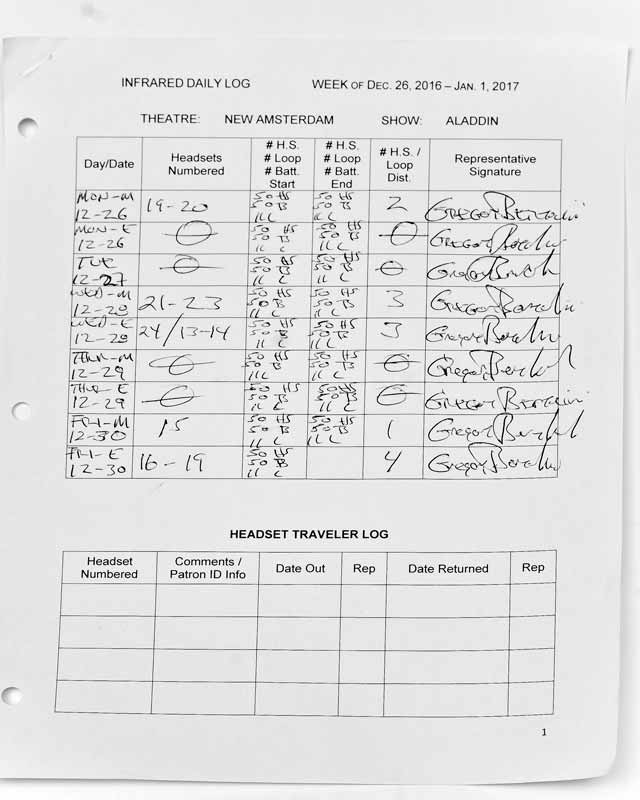 INFRARED DAILY LOG WEEK OF DEC. 26, 2016 – JAN. 1, 2017
THEATRE: NEW AMSTERDAM SHOW: ALADDIN
Day/Date Headsets Numbered # H.S. # Loop # Batt. Start # H.S. # Loop # Batt. End # H.S. / Loop Dist. Representative Signature
MON-M 12-26 19-20 50 HS 50 B 11 C 50 HS 50 B 11 C 2 GREGOR
MON-E 12-26 0 50 HS 50 B 11 C 50 HS 50 B 11 C 0 GREGOR
TUE 12-27 0 50 HS 50 B 11 C 50 HS 50 B 11 C 0 GREGOR
WED-M 12-28 21-23 50 HS 50 B 11 C 50 HS 50 B 11 C 3 GREGOR
WED-E 12-28 24/13-14 50 HS 50 B 11 C 50 HS 50 B 11 C 3 GREGOR
THUR-M 12-29 0 50 HS 50 B 11 C 50 HS 50 B 11 C 0 GREGOR
THUR E 12-29 0 50 HS 50 B 11 C 50 HS 50 B 11 C 0 GREGOR
FRI-M 12-30 15 50 HS 50 B 11 C 50 HS 50 B 11 C 1 GREGOR
FRI-E 12-30 16-19 50 HS 50 B 11 C 4 GREGOR
HEADSET TRAVELER LOG
Headset Numbered Comments / Patron ID Info Date Out Rep Date Returned Rep
1